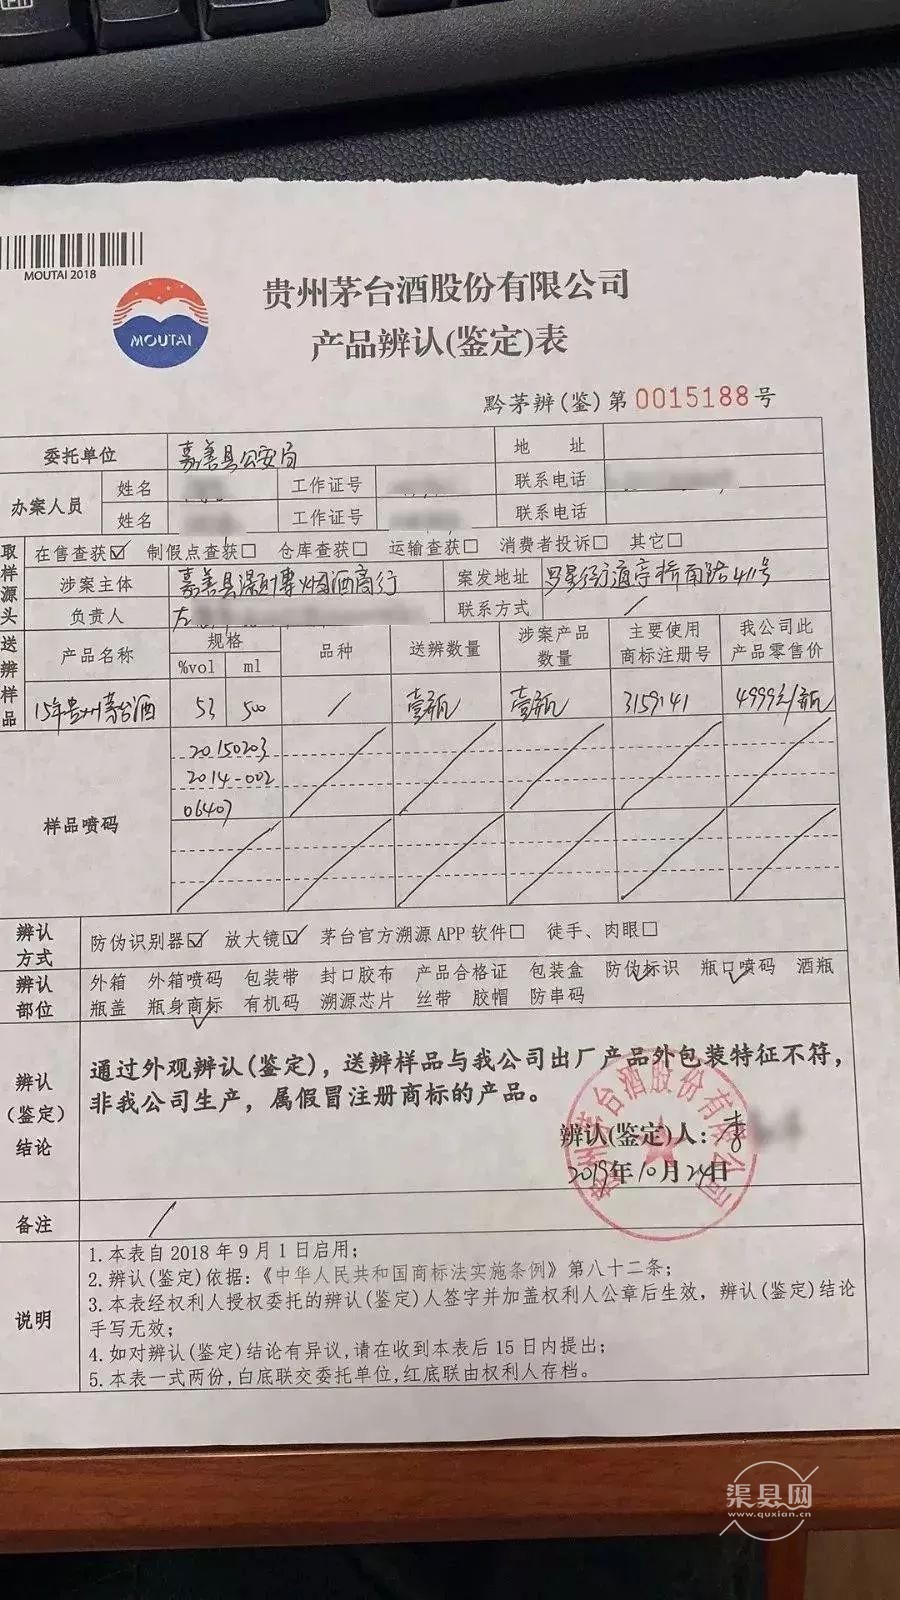 MOUTAI 2018
MOUTAI
贵州茅台酒股份有限公司
产品辨认(鉴定)表
黔茅辨(鉴)第0015188号
委托单位 嘉善县公安局 地 址
办案人员 姓名 工作证号 联系电话
姓名 工作证号 联系电话
取样源头 在售查获☑ 制假点查获□ 仓库查获□ 运输查获□ 消费者投诉□ 其它□
涉案主体 嘉善县 烟酒商行 案发地址 罗星街道亭桥南路411号
负责人 左 联系方式 /
送辨样品 产品名称 规格 %vol ml 品种 送辨数量 涉案产品数量 主要使用商标注册号 我公司此产品零售价
15年贵州茅台酒 53 500 / 壹瓶 壹瓶 3159141 4999元/瓶
样品喷码 20150203
2014-002
06407
辨认方式 防伪识别器☑ 放大镜☑ 茅台官方溯源APP软件□ 徒手、肉眼□
辨认部位 外箱 外箱喷码 包装带 封口胶布 产品合格证 包装盒 防伪标识 瓶口喷码 酒瓶
瓶盖 瓶身商标 有机码 溯源芯片 丝带 胶帽 防串码
辨认(鉴定)结论 通过外观辨认(鉴定),送辨样品与我公司出厂产品外包装特征不符,
非我公司生产,属假冒注册商标的产品。
辨认(鉴定)人:李
2019年10月24日
贵州茅台酒股份有限公司
备注 /
说明 1.本表自2018年9月1日启用;
2.辨认(鉴定)依据:《中华人民共和国商标法实施条例》第八十二条;
3.本表经权利人授权委托的辨认(鉴定)人签字并加盖权利人公章后生效,辨认(鉴定)结论
手写无效;
4.如对辨认(鉴定)结论有异议,请在收到本表后15日内提出;
5.本表一式两份,白底联交委托单位,红底联由权利人存档。
渠县网
www.quxian.cn